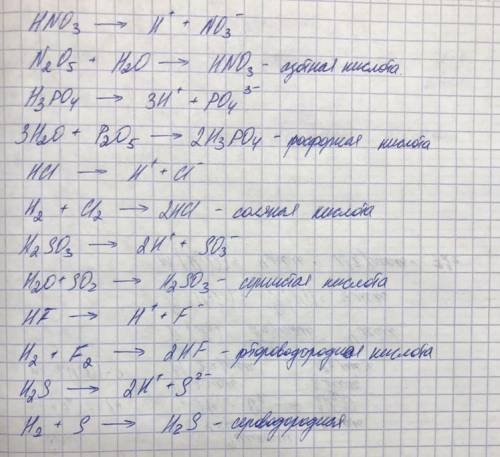 HNO₃ → H⁺ + NO₃⁻
N₂O₅ + H₂O → HNO₃ - азотная кислота
H₃PO₄ → 3H⁺ + PO₄³⁻
3H₂O + P₂O₅ → 2H₃PO₄ - фосфорная кислота
HCl → H⁺ + Cl⁻
H₂ + Cl₂ → 2HCl - соляная кислота
H₂SO₃ → 2H⁺ + SO₃⁻
H₂O + SO₂ → H₂SO₃ - сернистая кислота
HF → H⁺ + F⁻
H₂ + F₂ → 2HF - фтороводородная кислота
H₂S → 2H⁺ + S²⁻
H₂ + S → H₂S - сероводородная